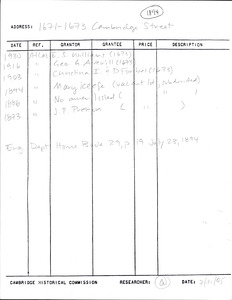 1894
ADDRESS: 1671-1673 Cambridge Street
DATE REF. GRANTOR GRANTEE PRICE DESCRIPTION
1930 Atlas E. S. Williams (1671)
1916 " Geo. A. (1673)
1903 " Christine I. + D Forbes (1673)
1894 " Mary Keefe (vacant lot,
1886 " No owner listed ( " )
1873 " J. P. ( " )
Eng. Dept. House Book 29, p 19 July 23, 1894
CAMBRIDGE HISTORICAL COMMISSION RESEARCHER: DATE: 7/11/95